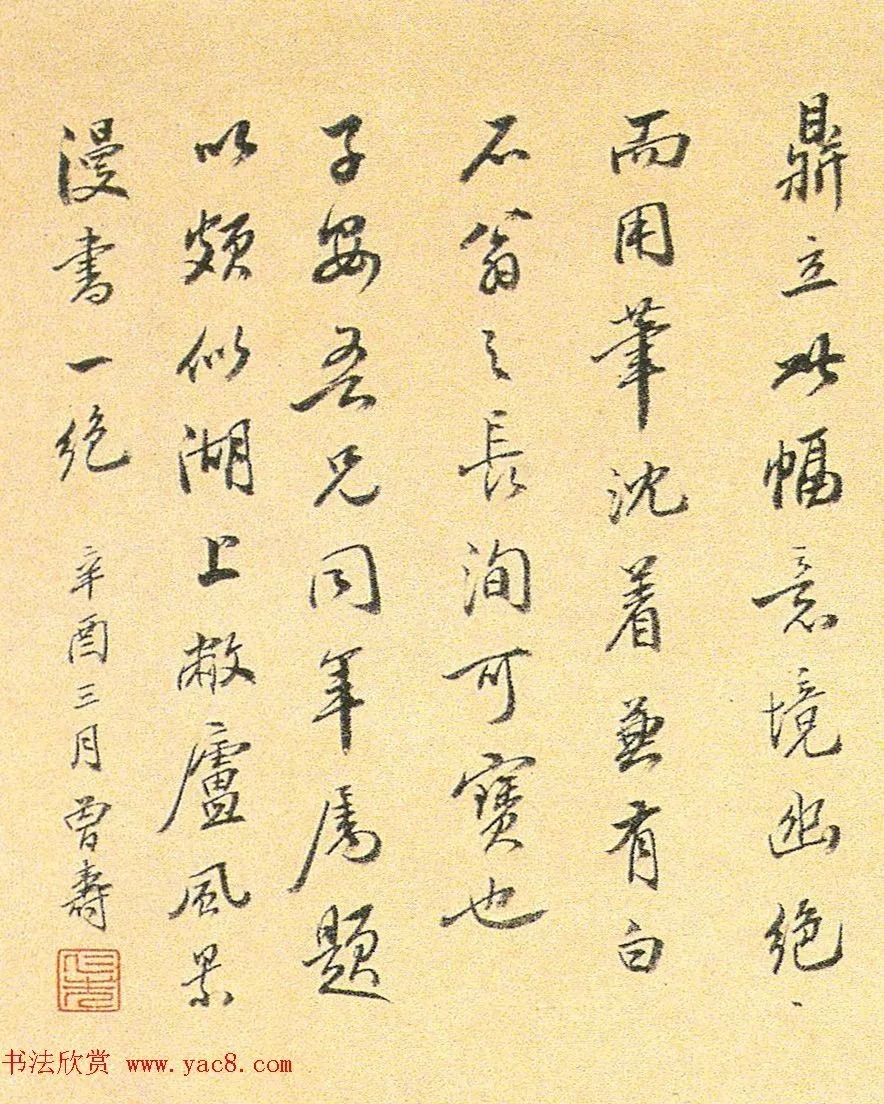 鼎立此幅意境幽絶
而用筆沈着兼有白
石翁之長洵可寶也
子安吾兄同年属題
以頗似湖上敝廬風景
漫書一絶 辛酉三月曾壽
书法欣赏 www.yac8.com